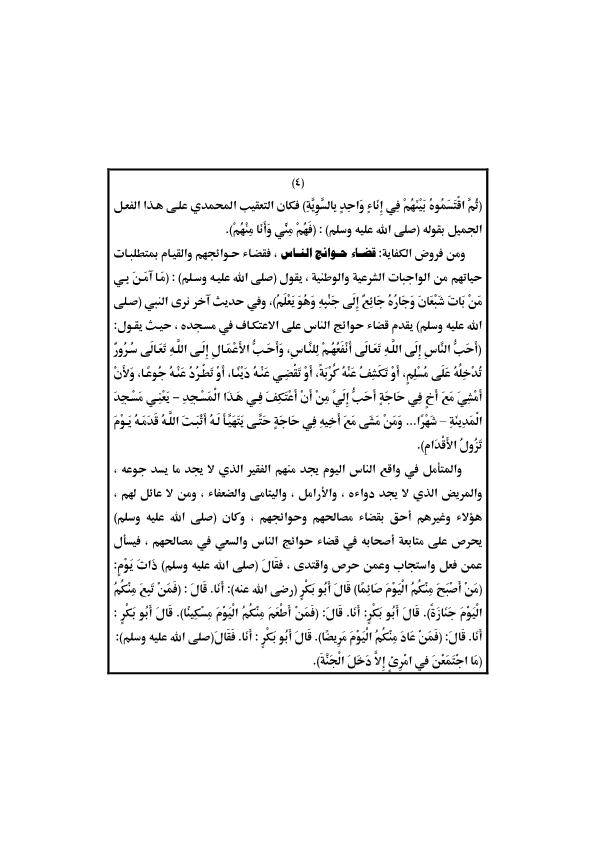 (٤)
(ثُمَّ اقْتَسَمُوهُ بَيْنَهُمْ فِي إِنَاءٍ وَاحِدٍ بالسَّوِيَّةِ) فكان التعقيب المحمدي على هذا الفعل
الجميل بقوله (صلى الله عليه وسلم) : (فَهُمْ مِنِّي وَأَنَا مِنْهُمْ).
ومن فروض الكفاية: قضاء حوائج الناس ، فقضاء حوائجهم والقيام بمتطلبات
حياتهم من الواجبات الشرعية والوطنية ، يقول (صلى الله عليه وسلم) : (مَا آمَنَ بِي
مَنْ بَاتَ شَبْعَانَ وَجَارُهُ جَائِعٌ إِلَى جَنْبِهِ وَهُوَ يَعْلَمُ)، وفي حديث آخر نرى النبي (صلى
الله عليه وسلم) يقدم قضاء حوائج الناس على الاعتكاف في مسجده ، حيث يقول:
(أَحَبُّ النَّاسِ إِلَى اللَّهِ تَعَالَى أَنْفَعُهُمْ لِلنَّاسِ، وَأَحَبُّ الأَعْمَالِ إِلَى اللَّهِ تَعَالَى سُرُورٌ
تُدْخِلُهُ عَلَى مُسْلِمٍ، أَوْ تَكَشِفُ عَنْهُ كُرْبَةً، أَوْ تَقْضِي عَنْهُ دَيْنًا، أَوْ تَطْرُدُ عَنْهُ جُوعًا، وَلأَنْ
أَمْشِيَ مَعَ أَخٍ فِي حَاجَةٍ أَحَبُّ إِلَيَّ مِنْ أَنْ أَعْتَكِفَ فِي هَذَا الْمَسْجِدِ – يَعْنِي مَسْجِدَ
الْمَدِينَةِ – شَهْرًا... وَمَنْ مَشَى مَعَ أَخِيهِ فِي حَاجَةٍ حَتَّى يَتَهَيَّأَ لَهُ أَثْبَتَ اللَّهُ قَدَمَهُ يَوْمَ
تَزُولُ الأَقْدَامِ).
والمتأمل في واقع الناس اليوم يجد منهم الفقير الذي لا يجد ما يسد جوعه ،
والمريض الذي لا يجد دواءه ، والأرامل ، واليتامى والضعفاء ، ومن لا عائل لهم ،
هؤلاء وغيرهم أحق بقضاء مصالحهم وحوائجهم ، وكان (صلى الله عليه وسلم)
يحرص على متابعة أصحابه في قضاء حوائج الناس والسعي في مصالحهم ، فيسأل
عمن فعل واستجاب وعمن حرص واقتدى ، فقَالَ (صلى الله عليه وسلم) ذَاتَ يَوْمٍ:
(مَنْ أَصْبَحَ مِنْكُمُ الْيَوْمَ صَائِمًا) قَالَ أَبُو بَكْرٍ (رضى الله عنه): أَنَا. قَالَ : (فَمَنْ تَبِعَ مِنْكُمُ
الْيَوْمَ جَنَازَةً). قَالَ أَبُو بَكْرٍ: أَنَا. قَالَ: (فَمَنْ أَطْعَمَ مِنْكُمُ الْيَوْمَ مِسْكِينًا). قَالَ أَبُو بَكْرٍ :
أَنَا. قَالَ: (فَمَنْ عَادَ مِنْكُمُ الْيَوْمَ مَرِيضًا). قَالَ أَبُو بَكْرٍ : أَنَا. فَقَالَ(صلى الله عليه وسلم):
(مَا اجْتَمَعْنَ فِي امْرِئٍ إِلاَّ دَخَلَ الْجَنَّةَ).